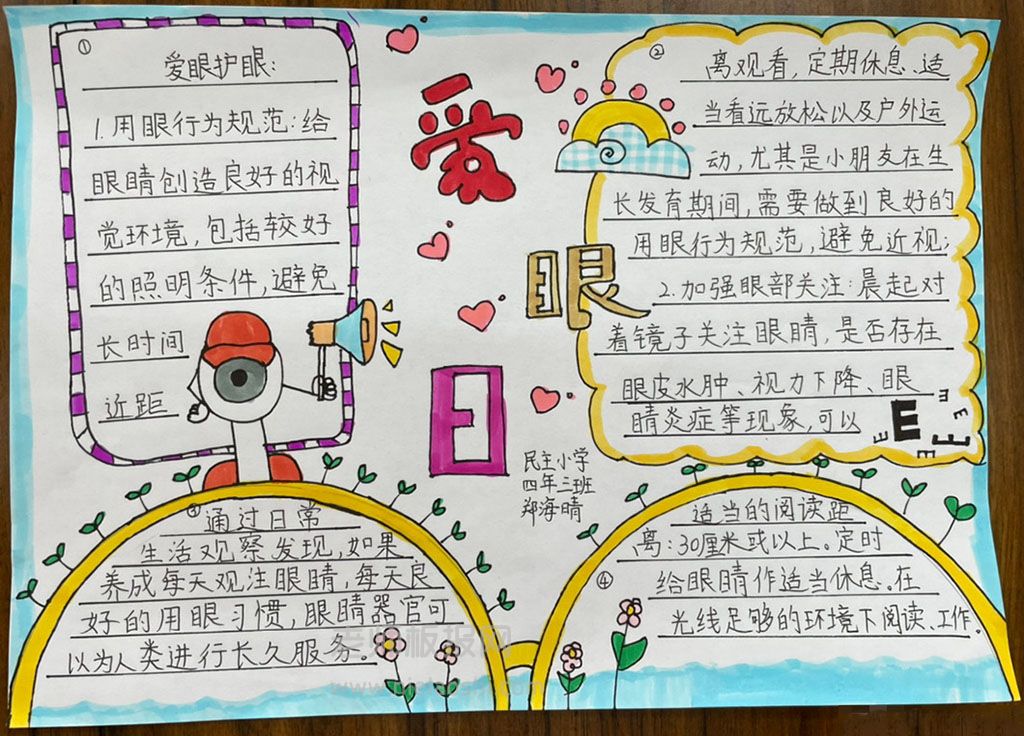 ①
爱眼护眼:
1.用眼行为规范:给
眼睛创造良好的视
觉环境,包括较好
的照明条件,避免
长时间
近距
②
离观看,定期休息、适
当看远放松以及户外运
动,尤其是小朋友在生
长发育期间,需要做到良好的
用眼行为规范,避免近视;
2.加强眼部关注:晨起对
着镜子关注眼睛,是否存在
眼皮水肿、视力下降、眼
睛炎症等现象,可以
E
E
E
E
E
E
E
爱
眼
日
民主小学
四年三班
郑海晴
③
通过日常
生活观察发现,如果
养成每天观注眼睛,每天良
好的用眼习惯,眼睛器官可
以为人类进行长久服务。
④
适当的阅读距
离:30厘米或以上。定时
给眼睛作适当休息。在
光线足够的环境下阅读、工作。
老师板报网